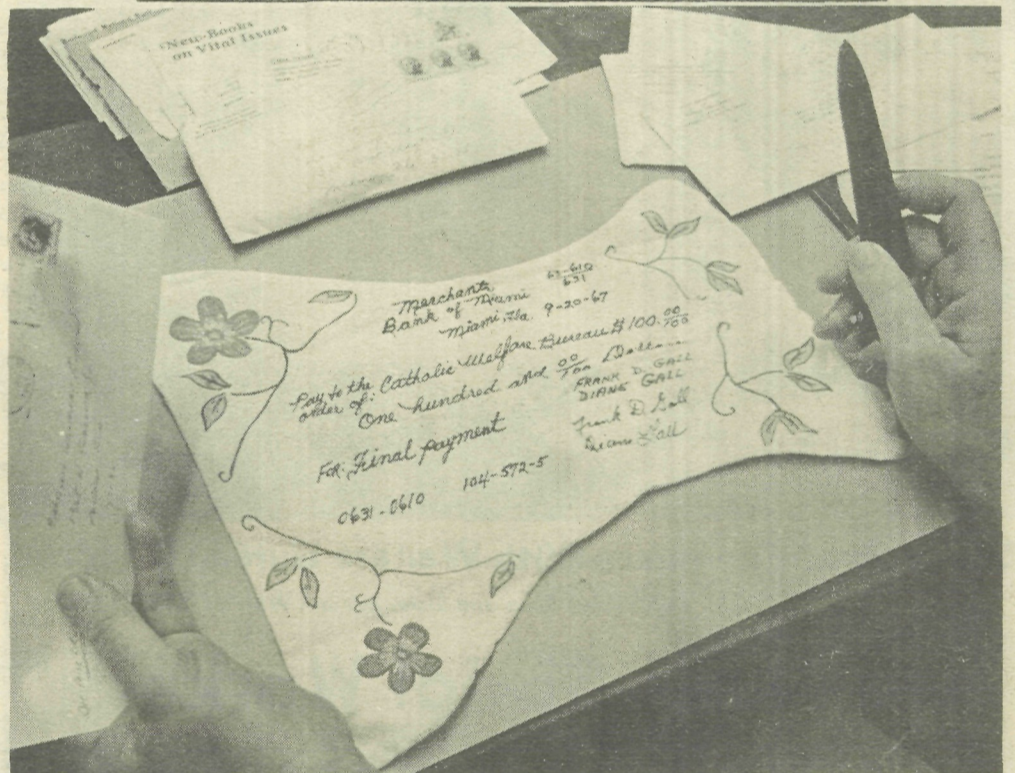 New Books
on Vital Issues
Merchants
Bank of Miami
63-610
631
Miami, Fla. 9-20-67
Pay to the
order of: Catholic Welfare Bureau $100.00/100
One hundred and 00/100 Dollars
FRANK D. GALL
DIANE GALL
For: Final payment
Frank D. Gall
Diane Gall
0631-0610 104-572-5